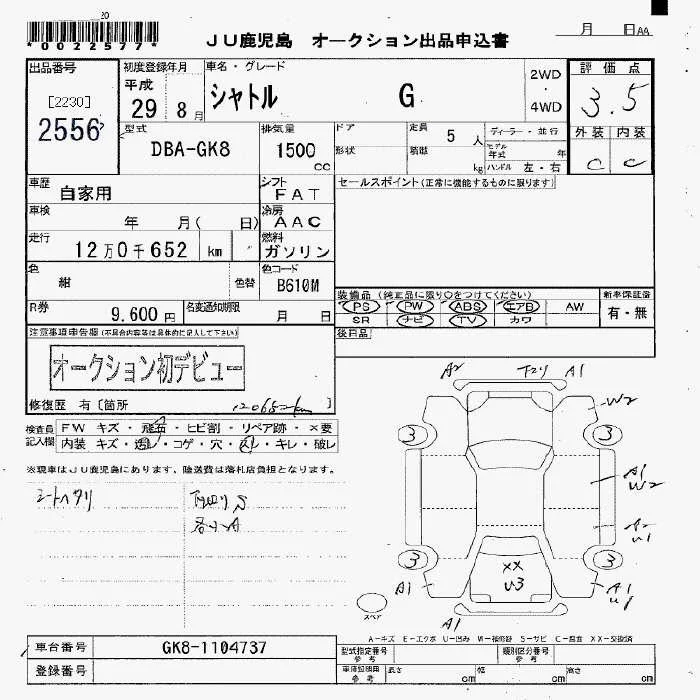 20
*0022577*
JU鹿児島 オークション出品申込書
月 日 AA
出品番号
[2230]
2556
初度登録年月
平成
29 8月
車名・グレード
シャトル G
2WD
・
4WD
評価点
3.5
外装 内装
C C
型式
DBA-GK8
排気量
1500
cc
ドア
形状
定員
5 人
積載
kg
ディーラー・並行
モデル
年式 年
ハンドル 左・右
車歴
自家用
シフト
FAT
車検
年 月( 日)
冷房
AAC
走行
12万0千652 km
燃料
ガソリン
色
紺
色替
色コード
B610M
R券
9,600円
名変通知期限
月 日
セールスポイント(正常に機能するものに限ります)
装備品(純正品に限り○をつけてください)
PS PW ABS エアB AW
SR ナビ TV カワ
新車保証書
有・無
後日品
注意事項申告欄(不具合内容等は具体的に記入して下さい)
オークション初デビュー
修復歴 有[箇所 120652km ]
検査員
記入欄
FW キズ・飛石・ヒビ割・リペア跡・×要
内装 キズ・汚レ・コゲ・穴・スレ・キレ・破レ
※現車はJU鹿児島にあります、陸送費は落札店負担となります。
シートヘタリ
A2 下スリ A1
W2
3 3
A1
W2
A2
U1
3 3
××
U3
A1
A1
A1
スペア
A-キズ E-エクボ U-凹み W-補修跡 S-サビ C-腐食 XX-交換済
車台番号
GK8-1104737
登録番号
型式指定番号
参考
類別区分番号
参考
車庫証明用
参考
長さ cm
幅 cm
高さ cm